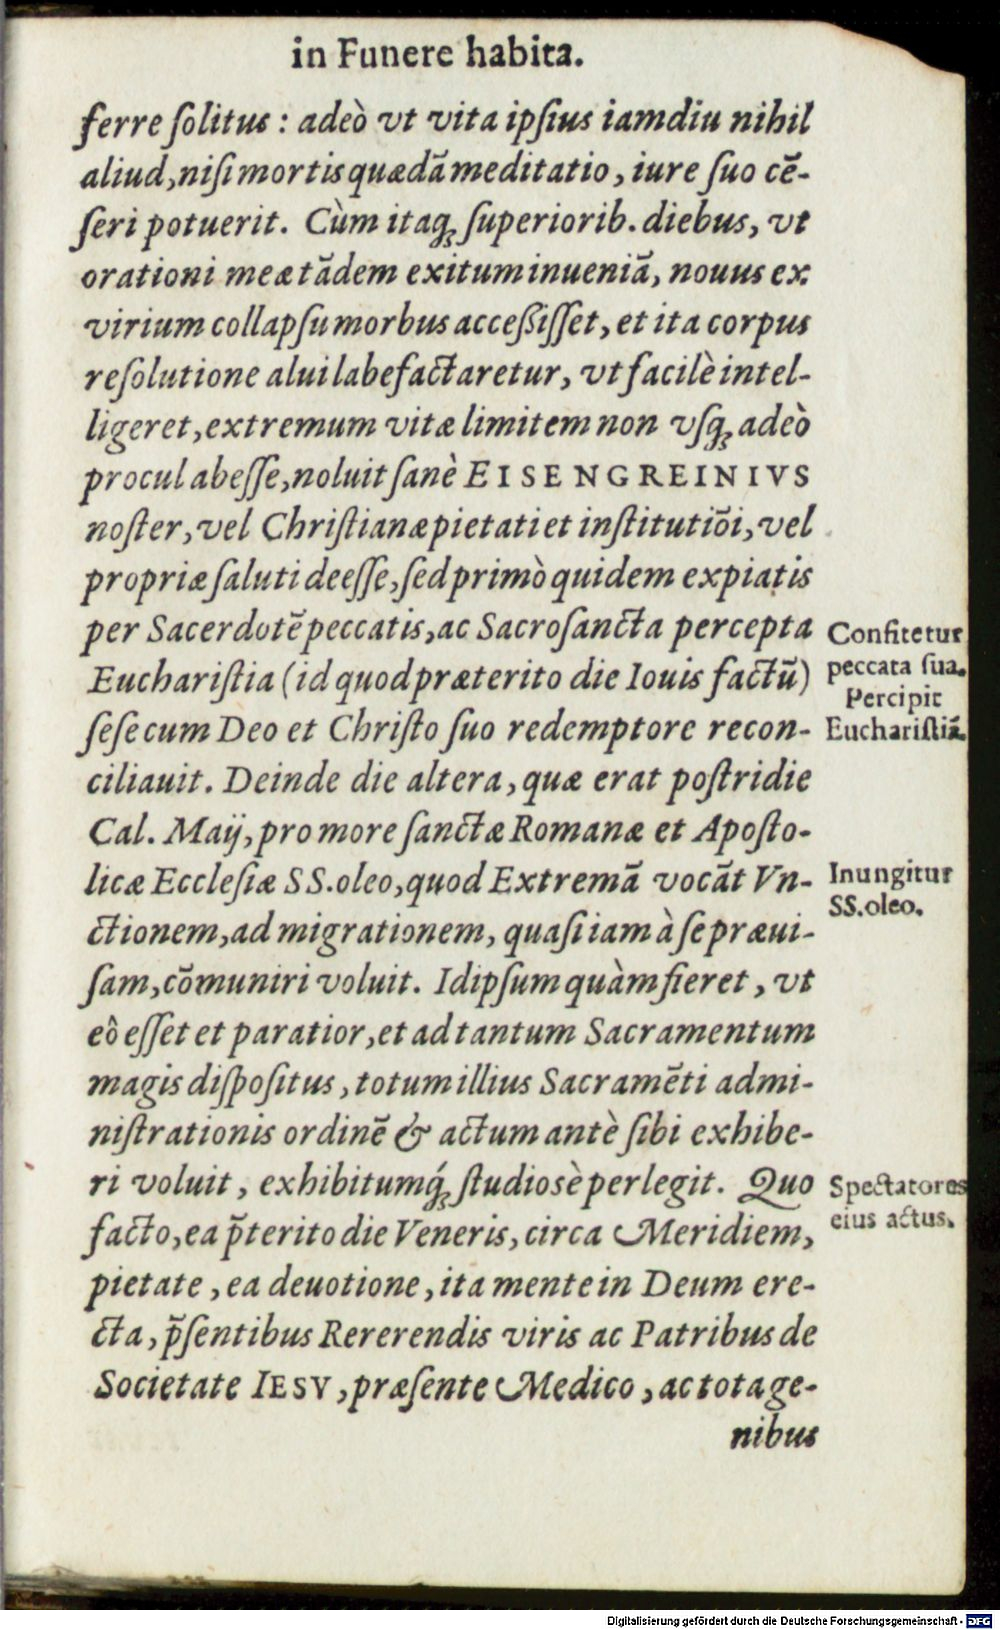 in Funere habita.
ferre ſolitus : adeò vt vita ipſius iamdiu nihil
aliud, niſi mortis quædã meditatio, iure ſuo cẽ-
ſeri potuerit. Cùm itaq; ſuperiorib. diebus, vt
orationi meæ tãdem exitum inueniã, nouus ex
virium collapſu morbus acceßiſſet, et ita corpus
reſolutione alui labefactaretur, vt facilè intel-
ligeret, extremum vitæ limitem non vſq; adeò
procul abeſſe, noluit ſanè EISENGREINIVS
noſter, vel Chriſtianæ pietati et inſtitutiõi, vel
propriæ ſaluti deeſſe, ſed primò quidem expiatis
per Sacerdotẽ peccatis, ac Sacroſancta percepta
Euchariſtia (id quod præterito die Iouis factũ)
ſeſe cum Deo et Chriſto ſuo redemptore recon-
ciliauit. Deinde die altera, quæ erat poſtridie
Cal. Maij, pro more ſanctæ Romanæ et Apoſto-
licæ Eccleſiæ SS. oleo, quod Extremã vocãt Vn-
ctionem, ad migrationem, quaſi iam à ſe præui-
ſam, cõmuniri voluit. Id ipſum quàm fieret, vt
eò eſſet et paratior, et ad tantum Sacramentum
magis diſpoſitus, totum illius Sacramẽti admi-
niſtrationis ordinẽ & actum antè ſibi exhibe-
ri voluit, exhibitumq́; ſtudiosè perlegit. Quo
facto, ea p̃terito die Veneris, circa Meridiem,
pietate, ea deuotione, ita mente in Deum ere-
cta, p̃ſentibus Rererendis viris ac Patribus de
Societate IESV, præſente Medico, ac tota ge-
nibus
Confitetur
peccata ſua.
Percipit
Euchariſtiã.
Inungitur
SS. oleo.
Spectatores
eius actus.
Digitalisierung gefördert durch die Deutsche Forschungsgemeinschaft - DFG